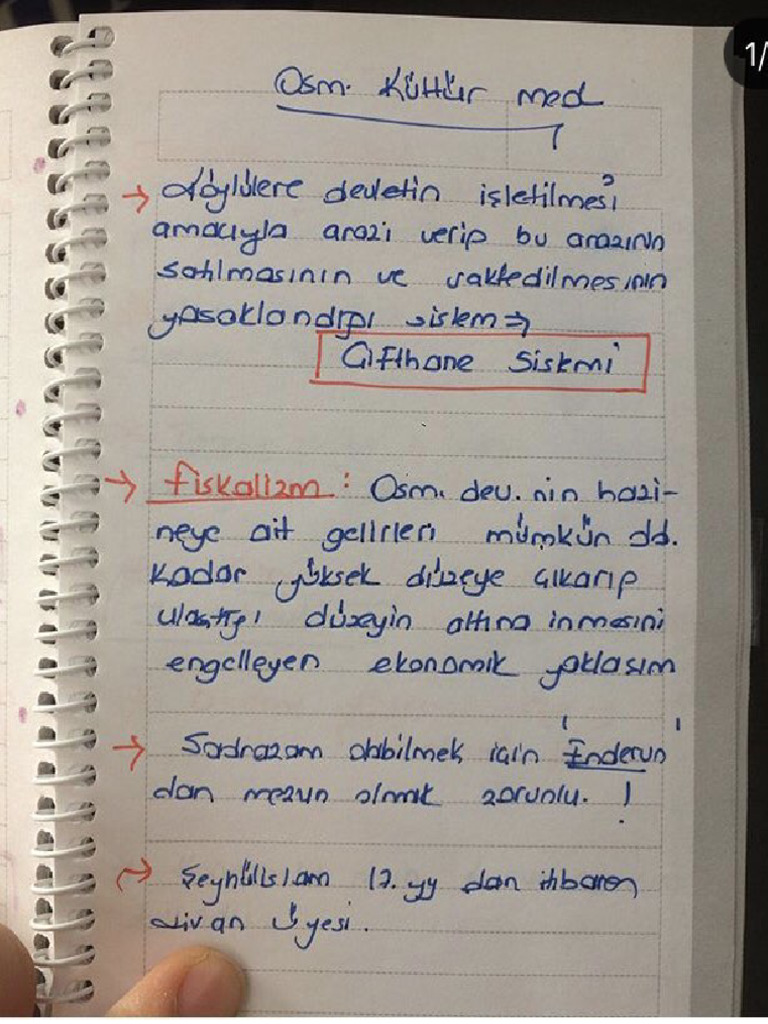 1/
Osm. Kültür med
→ Köylülere devletin işletilmesi
amacıyla arazi verip bu arazinin
satılmasının ve vakfedilmesinin
yasaklandığı sistem ⇒
Çifthane Sistemi
→ fiskalizm: Osm. dev. nin hazi-
neye ait gelirleri mümkün old.
kadar yüksek düzeye çıkarıp
ulaştığı düzeyin altına inmesini
engelleyen ekonomik yaklaşım
→ Sadrazam olabilmek için Enderun
dan mezun olmak zorunlu. !
→ Şeyhülislam 17. yy dan itibaren
divan üyesi.